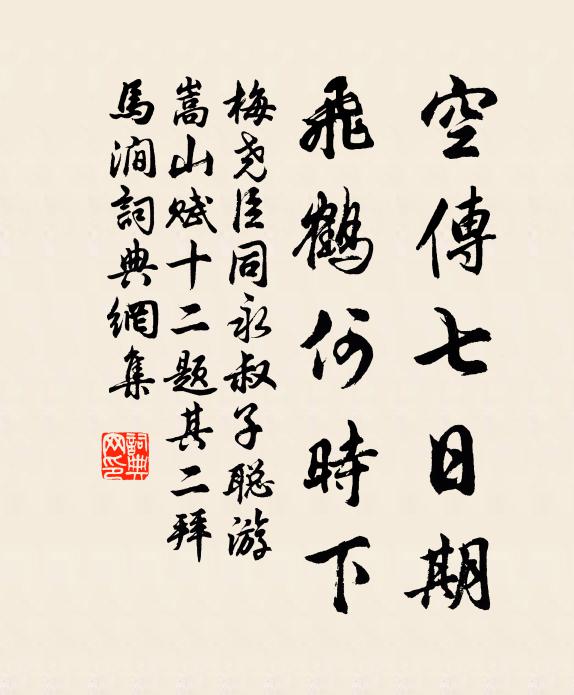 空傳七日期
飛鶴何時下
梅尧臣同永叔子聪游
嵩山赋十二题其二拜
馬澗詞典網集
詞典
网印